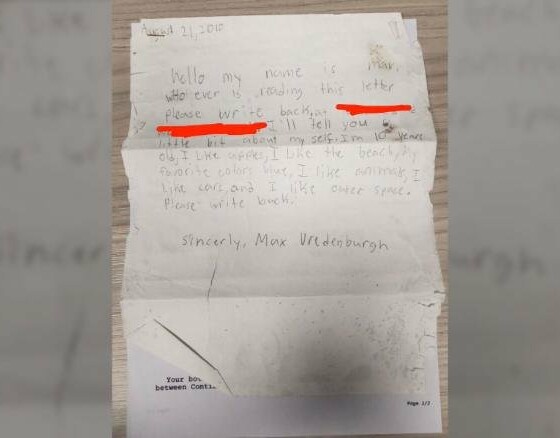 August 21, 2010
hello my name is max,
who ever is reading this letter
please write back, at
I'll tell you a
little bit about my self, I'm 10 years
old, I like apples, I like the beach, My
favorite color is blue, I like animals, I
like cars, and I like outer space.
Please write back.
sincerly, Max Vredenburgh
Your
between
Page 1/2